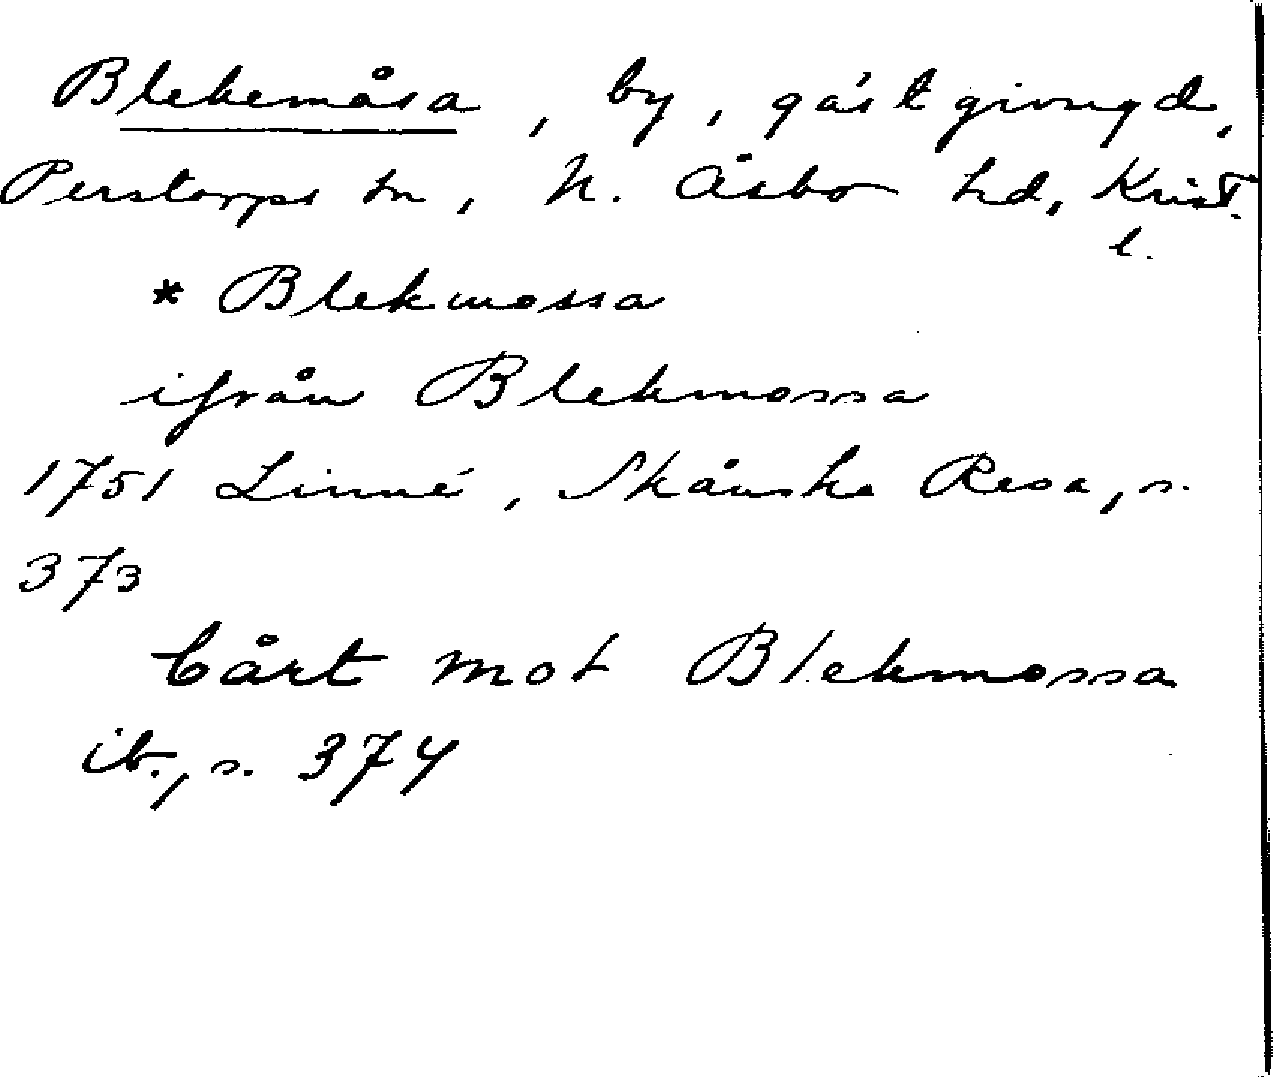 Blekemåsa, by, gästgivngd,
Perstorps sn, N. Åsbo hd, Krist.
l.
* Blekmossa
ifrån Blekmossa
1751 Linné, Skånska Resa, s.
373
bårt mot Blekmossa
ib., s. 374